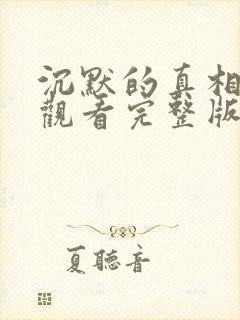 沉默的真相
觀看完整版
夏聽音